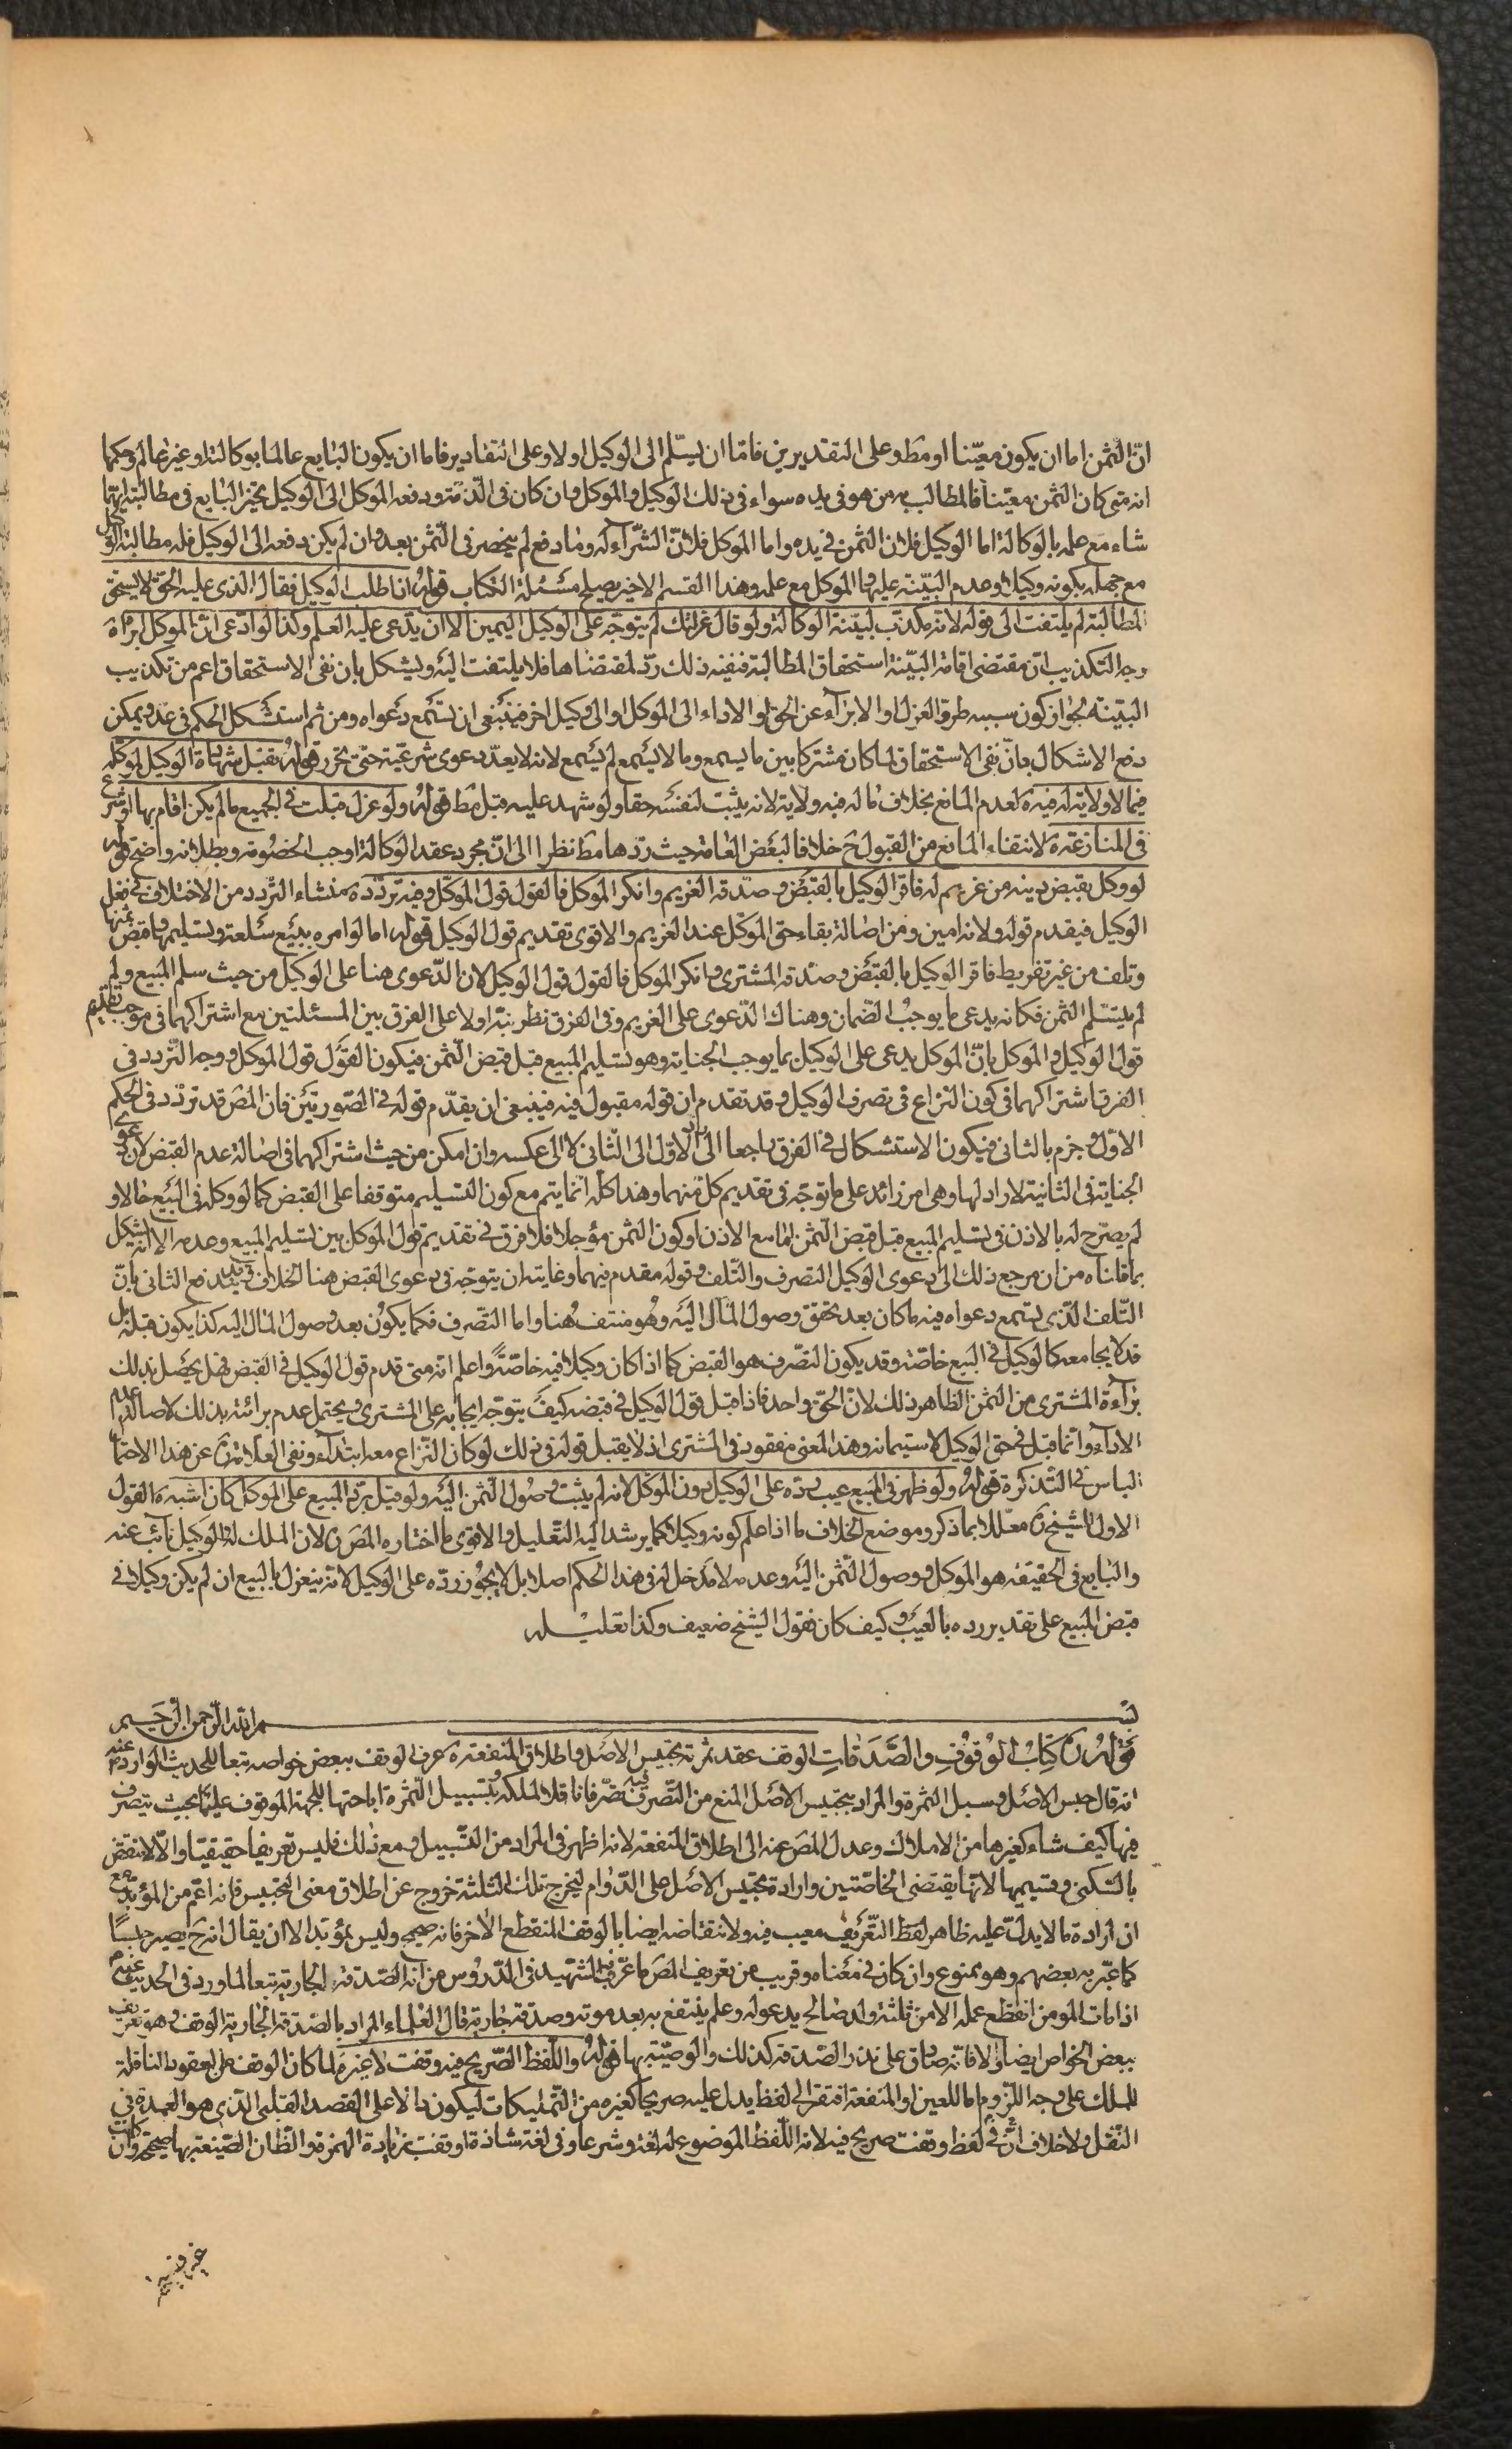 انّ الثمن اما ان يكون معيّنا او مط وعلى التقديرين فامّا ان يسلّم الى الوكيل اولا وعلى التقادير فاما ان يكون البايع عالما بوكالته او غير عالم وحكمها
انه متى كان الثمن معيّنا فالمطالب به من هو فى يده سواء فى ذلك الوكيل والموكل وان كان فى الذّمّة ودفعه الموكل الى الوكيل تخيّر البايع فى مطالبة ايّهما
شاء مع علمه بالوكالة اما الوكيل فلان الثمن فى يده واما الموكل فلانّ الشّرآء له وما دفع لم ينحصر فى الثّمن بعد وان لم يكن دفعه الى الوكيل فله مطالبة الوكيل
مع جهله بكونه وكيلا وعدم البيّنة عليه والموكل مع علمه وهذا القسم الاخير يصلح مسئلة الكتاب قوله اذا طلب الوكيل فقال الذى عليه الحق لا يستحق
المطالبة لم يلتفت الى قوله لانه مكذّب لبيّنة الوكالة ولو قال عزلك لم يتوجّه على الوكيل اليمين الا ان يدّعى عليه العلم وكذا لو ادّعى انّ الموكل ابرأه
وجه التكذيب انّ مقتضى اقامة البيّنة استحقاق المطالبة فنفيه ذلك ردّ لمقتضاها فلا يلتفت اليه ويشكل بان نفى الاستحقاق اعم من تكذيب
البيّنة لجواز كون سببه طروّ العزل او الابرآء عن الحق او الاداء الى الموكل او الى وكيل اخر فينبغى ان تسمع دعواه ومن ثم استشكل الحكم فى عد ويمكن
دفع الاشكال بانّ نفى الاستحقاق لما كان مشتركا بين ما يسمع وما لا يسمع لم يسمع لانه لا يعدّ دعوى شرعيّة حتى تحرر قوله تقبل شهادة الوكيل لموكّله
فيما لا ولاية له فيه لعدم المانع بخلاف ما له فيه ولاية لانه يثبت لنفسه حقا ولو شهد عليه قبل مط قوله ولو عزل قبلت فى الجميع ما لم يكن اقام بها او شرع
فى المنازعة لانتفاء المانع من القبول ح خلافا لبعض العامة حيث ردّها مط نظرا الى انّ مجرد عقد الوكالة اوجب الخصومة وبطلانه واضح قوله
لو وكل بقبض دينه من غريم له فاقرّ الوكيل بالقبض وصدّقه الغريم وانكر الموكل فالقول قول الموكّل وفيه تردّد منشاء التّردد من الاختلاف فى فعل
الوكيل فيقدم قوله ولانه امين ومن اصالة بقاء حق الموكّل عند الغريم والاقوى تقديم قول الوكيل قوله اما لو امره ببيع سلعة وتسليمها وقبض ثمنها
وتلف من غير تفريط فاقر الوكيل بالقبض وصدّقه المشترى وانكر الموكل فالقول قول الوكيل لان الدّعوى هنا على الوكيل من حيث سلم المبيع ولم
لم يتسلّم الثمن فكانه يدعى ما يوجب الضّمان وهناك الدّعوى على الغريم وفى الفرق نظر نبّه اولا على الفرق بين المسئلتين مع اشتراكهما فى موجب تقديم
قول الوكيل والموكل بانّ الموكل يدعى على الوكيل بما يوجب الجناية وهو تسليم المبيع قبل قبض الثّمن فيكون القول قول الموكل ووجه التّردد فى
الفرق اشتراكهما فى كون النزاع فى تصرف الوكيل وقد تقدم ان قوله مقبول فيه فينبغى ان يقدّم قوله فى الصّورتين فان المص قد تردّد فى الحكم
الاوّل وجزم بالثانى فيكون الاستشكال فى الفرق راجعا الى ردّ الاوّل الى الثّانى لا الى عكسه وان امكن من حيث اشتراكهما فى اصالة عدم القبض لان دعوى
الجناية فى الثانية لا راد لها وهى امر زائد على ما توجّه فى تقديم كل منهما وهذا كلّه انّما يتم مع كون التسليم متوقفا على القبض كما لو وكله فى البيع حالا و
لم يصرّح له بالاذن فى تسليم المبيع قبل قبض الثّمن امّا مع الاذن او كون الثمن مؤجلا فلا فرق فى تقديم قول الموكل بين تسليم المبيع وعدمه الا انّه يشكل
بما قلناه من ان مرجع ذلك الى دعوى الوكيل التصرف والتّلف وقوله مقدم فيهما وغايته ان يتوجّه فى دعوى القبض هنا الخلاف وقد يدفع الثانى بانّ
التّلف الذى تسمع دعواه فيه ما كان بعد تحقق وصول المال اليه وهو منتف هنا واما التصّرف فكما يكون بعد وصول المال اليه كذا يكون قبله بل
قد لا يجامعه كالوكيل فى البيع خاصّة وقد يكون التصّرف هو القبض كما اذا كان وكيلا فيه خاصّة واعلم انه متى قدم قول الوكيل فى القبض فهل يحصل بذلك
برآءة المشترى من الثمن الظاهر ذلك لانّ الحقّ واحد فاذا قبل قول الوكيل فى قبضه كيف يتوجّه ايجابه على المشترى ويحتمل عدم برائته بذلك لاصالة عدم
الادآء وانّما قبل فى حق الوكيل لاستيمانه وهذا المعنى مفقود فى المشترى اذ لا يقبل قوله فى ذلك لو كان النّزاع معه ابتدآء ونفى العلّامة عن هذا الاحتمال
الباس فى التذكرة قوله ولو ظهر فى المبيع عيب ردّه على الوكيل دون الموكل لانه لم يثبت وصول الثّمن اليه ولو قيل بردّ المبيع على الموكل كان اشبه القول
الاول للشيخ ره معلّلا بما ذكر وموضع الخلاف ما اذا علم كونه وكيلا كما يرشد اليه التّعليل والاقوى ما اختاره المص ره لان الملك له والوكيل نآئب عنه
والبايع فى الحقيقة هو الموكل ووصول الثّمن اليه وعدمه لا مدخل له فى هذا الحكم اصلا بل لا يجوز ردّه على الوكيل لانه ينعزل بالبيع ان لم يكن وكيلا فى
قبض المبيع على تقدير رده بالعيب وكيف كان فقول الشيخ ضعيف وكذا تعليله
بسم الله الرّحمن الرّحيم
قوله ره كتاب الوقوف والصّدقات الوقف عقد ثمرته تحبيس الاصل واطلاق المنفعة عرف الوقف ببعض خواصه تبعا للحديث الوارد عنه ص
انه قال حبس الاصل وسبل الثمرة والمراد بتحبيس الاصل المنع من التّصرف فيه تصّرفا ناقلا لملكه وبتسبيل الثّمرة اباحتها للجهة الموقوف عليها بحيث يتصرف
فيها كيف شاء كغيرها من الاملاك وعدل المص عنه الى اطلاق المنفعة لانه اظهر فى المراد من التسّبيل ومع ذلك فليس تعريفا حقيقيّا والّا لانتقض
بالسّكنى وقسيميها لانها يقتضى الخاصّتين وارادة تحبيس الاصل على الدّوام ليخرج تلك الثلثة خروج عن اطلاق معنى التحبيس فانه اعّم من المؤبد مع
ان ارادة ما لا يدلّ عليه ظاهر لفظ التّعريف معيب فيه ولانتقاضه ايضا بالوقف المنقطع الاخر فانه صحيح وليس بمؤبّد الا ان يقال انه ح يصير حبسًا
كما عبّر به بعضهم وهو ممنوع وان كان فى معناه وقريب من تعريف المص ما عرّف به الشّهيد فى الدّروس من انّه الصّدقة الجارية تبعا لما ورد فى الحديث عنهم
اذا مات المومن انقطع عمله الا من ثلثة ولد صالح يدعو له وعلم ينتفع به بعد موته وصدقة جارية قال العلماء المراد بالصّدقة الجارية الوقف وهو تعريف
ببعض الخواص ايضا والا فانّه صادق على نذر الصّدقة كذلك والوصيّة بها قوله واللفظ الصّريح فيه وقفت لا غير لما كان الوقف من العقود الناقلة
للملك على وجه اللّزوم اما للعين او المنفعة افتقر الى لفظ يدل عليه صريحا كغيره من التّمليكات ليكون دالا على القصد القلبى الذى هو العمدة فى
النّقل ولا خلاف انّ فى لفظ وقفت صريح فيه لانه اللّفظ الموضوع له لغة وشرعا وفى لغة شاذة اوقفت بزيادة الهمزة والظّان الصّيغة بها صحيحة وان كانت
غير فصيحة